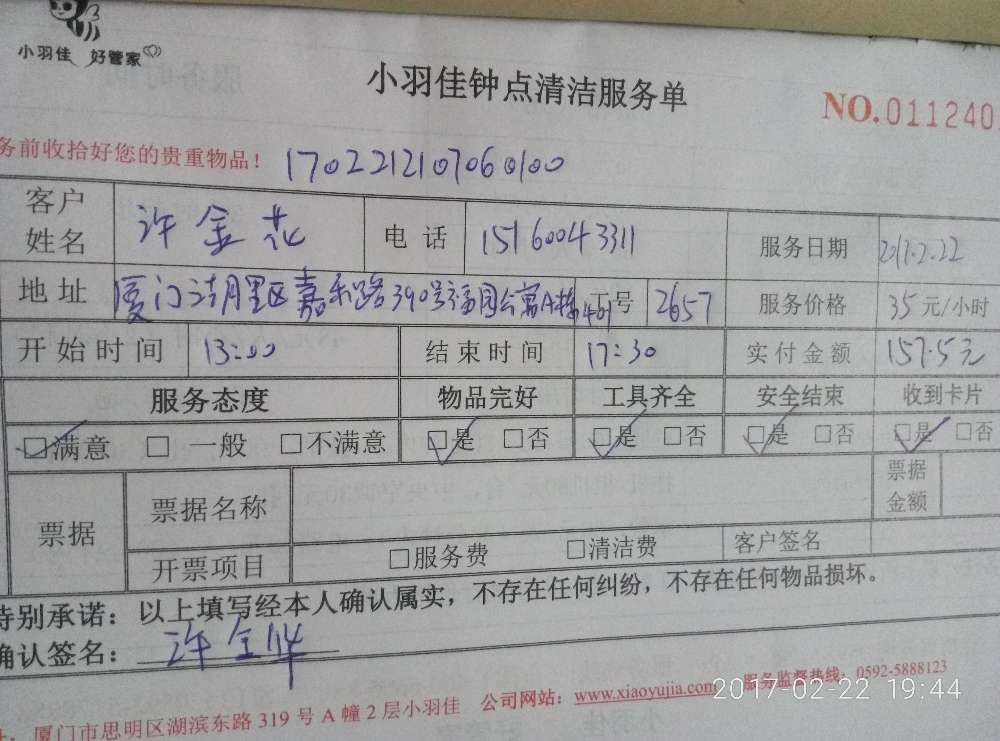 小羽佳 好管家
小羽佳钟点清洁服务单
NO.011240
务前收拾好您的贵重物品！ 1702212107060100
客户姓名 许金花 电话 15160043311 服务日期 2017.2.22
地址 厦门湖里区嘉禾路390号福园公寓A栋401 工号 2657 服务价格 35元/小时
开始时间 13:00 结束时间 17:30 实付金额 157.5元
服务态度 物品完好 工具齐全 安全结束 收到卡片
☑满意 □一般 □不满意 ☑是 □否 ☑是 □否 ☑是 □否 ☑是 □否
票据 票据名称 票据金额
开票项目 □服务费 □清洁费 客户签名
特别承诺：以上填写经本人确认属实，不存在任何纠纷，不存在任何物品损坏。
确认签名：许金华
厦门市思明区湖滨东路319号A幢2层小羽佳 公司网站：www.xiaoyujia.com 服务监督热线：0592-5888123
2017-02-22 19:44